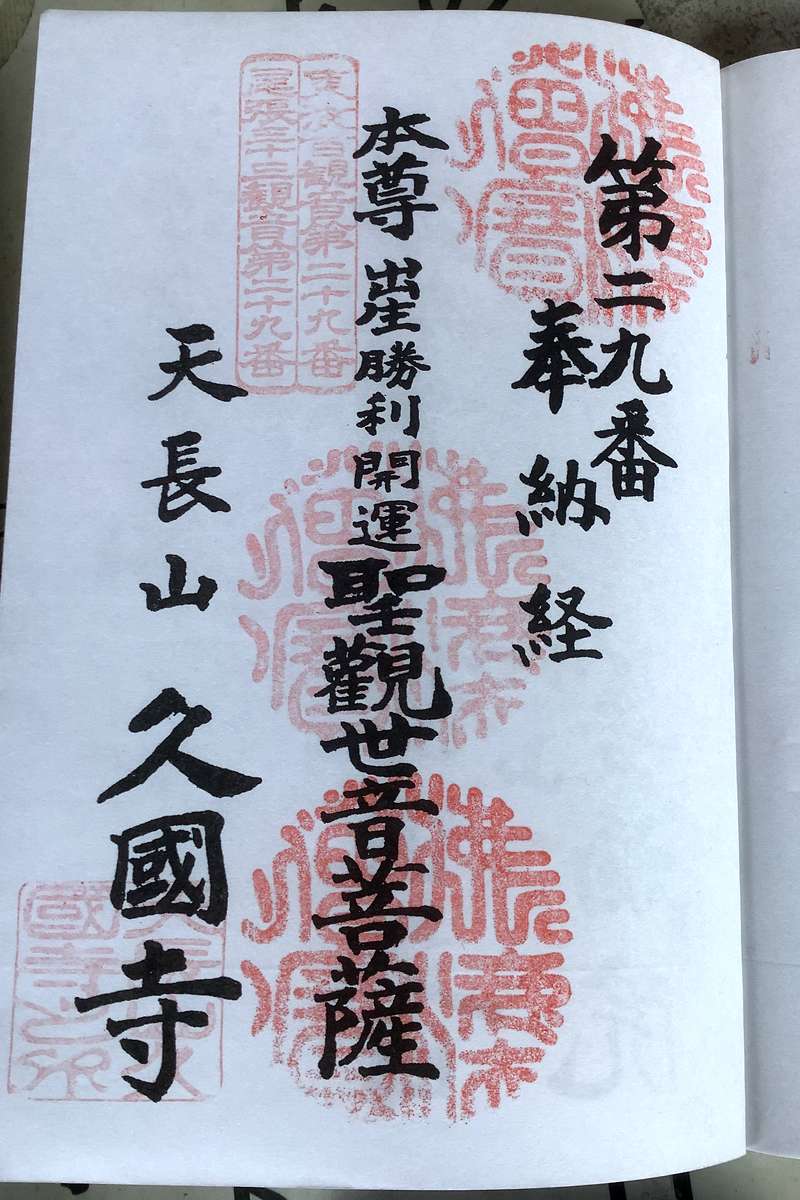 第二九番
奉納経
本尊 出生勝利開運聖觀世音菩薩
観音第二十九番
尾張三十三観音第二十九番
天長山 久國寺